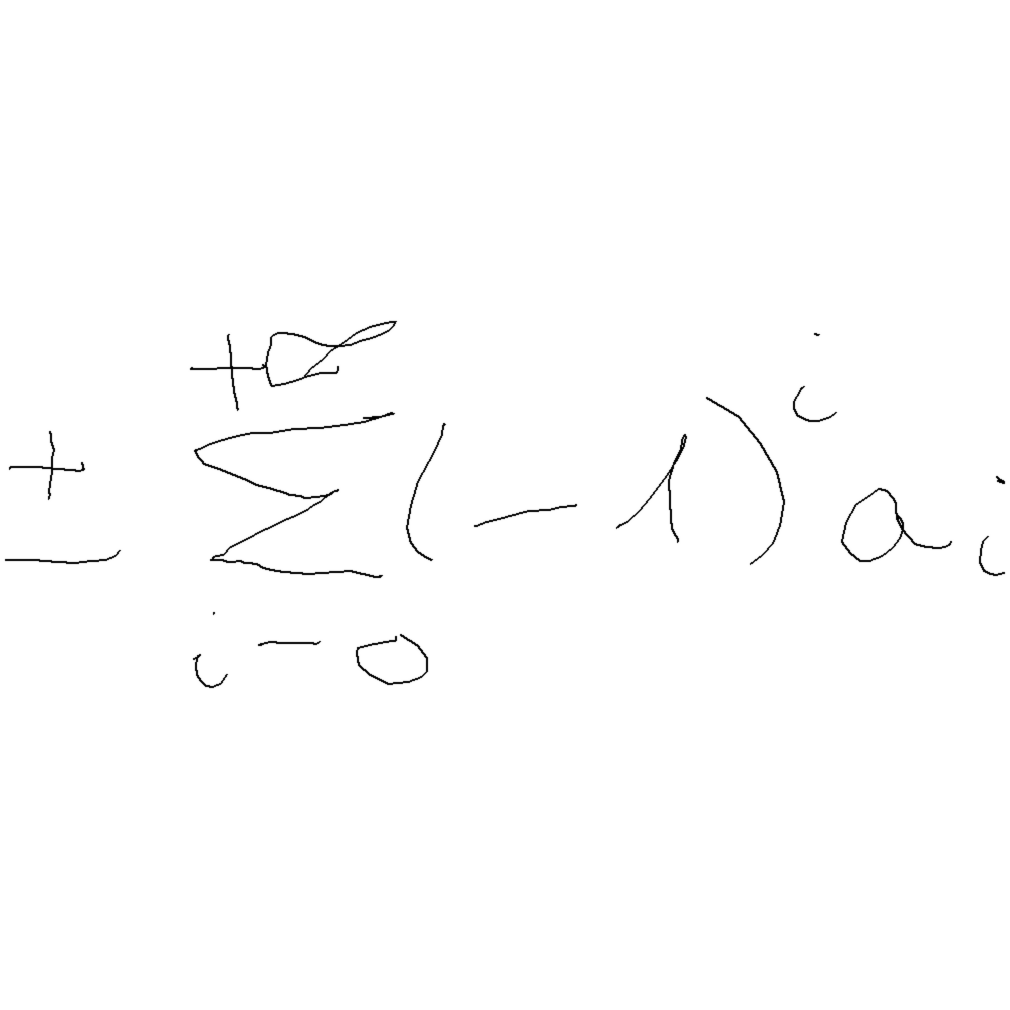 \pm \sum_{i-0}^{+\infty} (-1)^i a_i